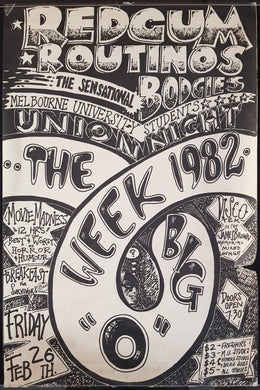 REDGUM
ROUTINOS
THE SENSATIONAL
BODGIES
MELBOURNE UNIVERSITY STUDENTS
UNION NIGHT
THE
BIG
"O"
WEEK 1982
MOVIE MADNESS
12 HRS
BEST & WORST
HORROR
HUMOUR
BREAKFAST
FOR
SURVIVORS
FRIDAY
FEB 26TH.
VIDEO
IN THE
MEMORIAL
LOUNGE
DOORS
OPEN
7.30
$2 - FRESHERS
$3 - M.U. STUDES
$4
$5 - ALL OTHERS